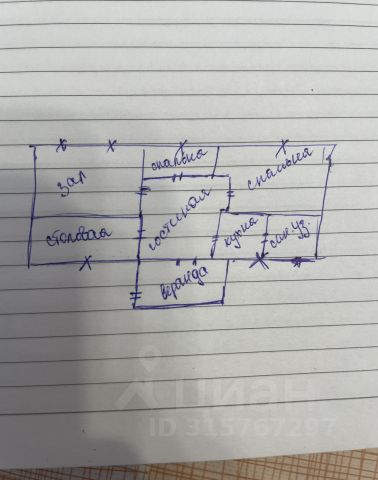 спальня
спальня
зал
гостиная
столовая
кухня
сан. уз.
веранда
циан
ID 315767297